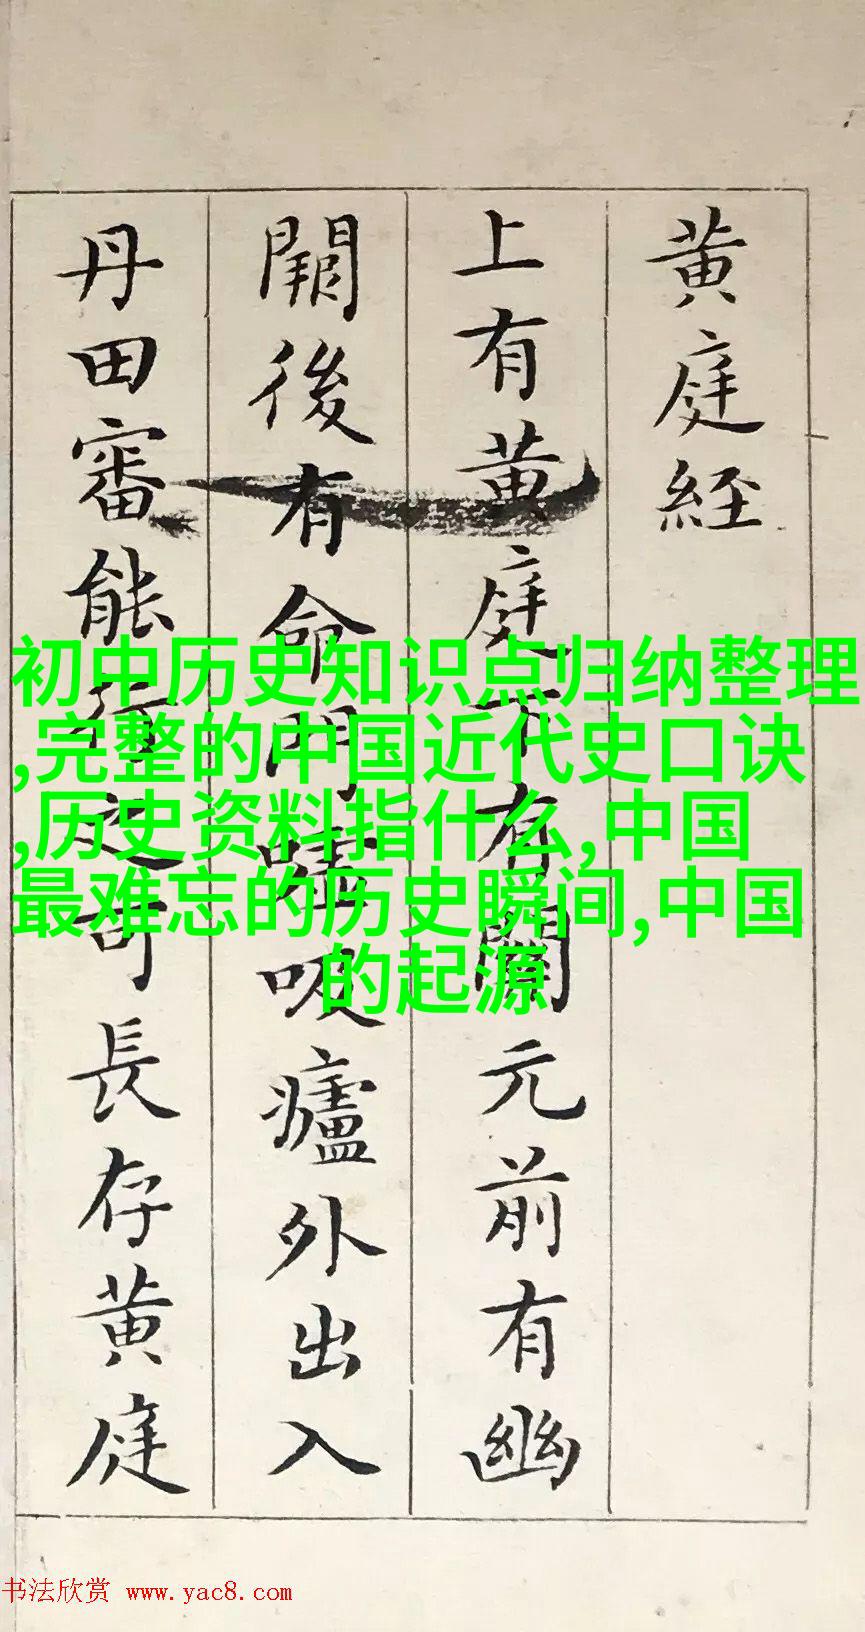 黄庭經
上有黄庭下有關元前有幽
闕後有命門嘘吸廬外出入
丹田審能行之可長存黄庭
初中历史知识点归纳整理
,完整的中国近代史口诀
,历史资料指什么,中国
最难忘的历史瞬间,中国
的起源
书法欣赏 www.yac8.com